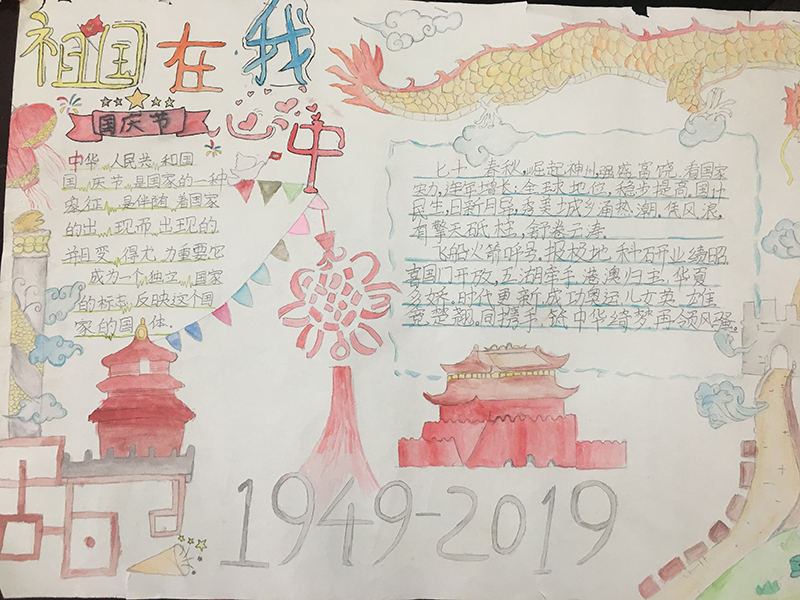 祖国在我
心中
国庆节
中华人民共和国
国庆节是国家的一种
象征是伴随着国家
的出现而出现的
并且变得尤为重要它
成为一个独立国家
的标志,反映这个国
家的国体.
七十春秋,崛起神州,强盛富饶.看国家
实力,连年增长,全球地位,稳步提高,国计
民生,日新月异,秀美城乡涌热潮.任风浪,
有擎天砥柱,舒卷云涛.
飞船火箭呼号.报极地科研业绩昭
喜国门开放,五湖牵手,港澳归玉,华夏
多娇.时代更新,成功奥运,儿女英雄
竞楚翘.同携手,筑中华绮梦再领风骚.
1949-2019
中国